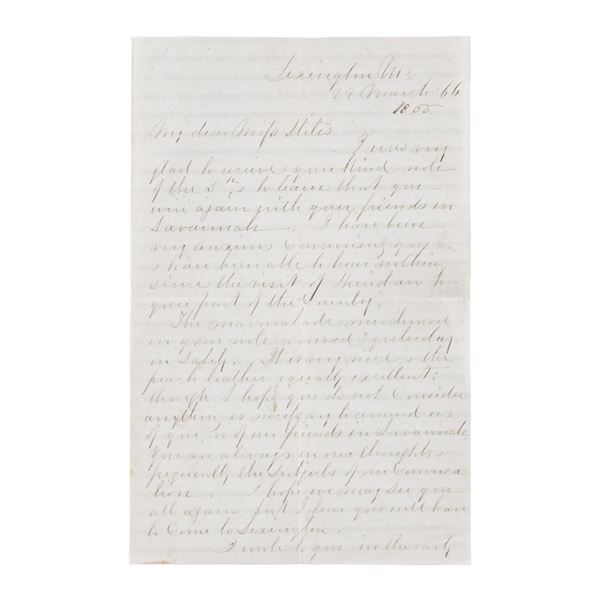 Lexington Va:
29 March '66
1855
My dear Miss Stiles
I was very
glad to receive your kind note
of the 5th, & to learn that you
were again with your friends in
Savannah. I have been
very anxious concerning you
& have been able to hear nothing
since the visit of Sheridan to
your part of the Country.
The marmalade mentioned
in your note arrived yesterday
in safety. It is very nice & the
peach leather equally excellent:
though I hope you do not consider
anything is necessary to remind us
of you, or of our friends in Savannah
You are always in our thoughts &
frequently the subjects of our Conversa
tion. I hope we may see you
all again, but I fear you will have
to Come to Lexington.
I wrote to you in the early